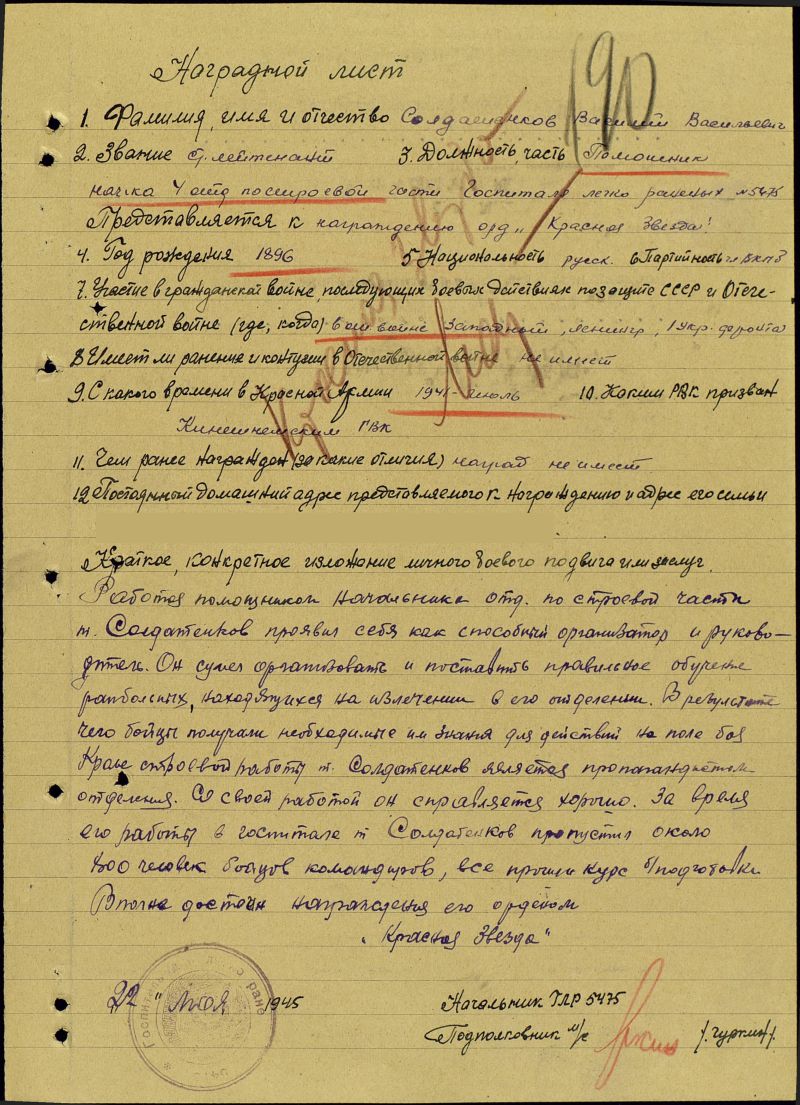 Наградной лист
190
1. Фамилия, имя и отчество Солдатенков Василий Васильевич
2. Звание ст. лейтенант 3. Должность, часть Помошник
начка 4 отд по строевой части Госпиталя легко раненых №5475
Представляется к награждению орд. „Красная Звезда"
4. Год рождения 1896 5 Национальность русск. 6 Партийность чл ВКПб
7. Участие в гражданской войне, последующих боевых действиях по защите СССР и Отече-
ственной войне (где, когда) в от. войне Западный, ленингр, 1 Укр. фронта
8 Имеет ли ранения и контузии в Отечественной войне не имеет
9. С какого времени в Красной Армии 1941 - июль 10. Каким РВК призван
Кинешемским ГВК
11. Чем ранее награжден (за какие отличия) наград не имеет
12 Постоянный домашний адрес представляемого к награждению и адрес его семьи
Красная Звезда
Краткое, конкретное изложение личного боевого подвига или заслуг.
Работая помощником начальника отд. по строевой части
т. Солдатенков проявил себя как способный организатор и руково-
дитель. Он сумел организовать и поставить правильное обучение
ранбольных, находящихся на излечении в его отделении. В результате
чего бойцы получали необходимые им знания для действий на поле боя
Кроме строевой работы т. Солдатенков является пропагандистом
отделения. Со своей работой он справляется хорошо. За время
его работы в госпитале т Солдатенков пропустил около
800 человек бойцов командиров, все прошли курс б/подготовки
Вполне достоин награждения его орденом
„Красная Звезда"
„22" Мая 1945 Начальник ГЛР 5475
Подполковник м/с /. Чуркин /.